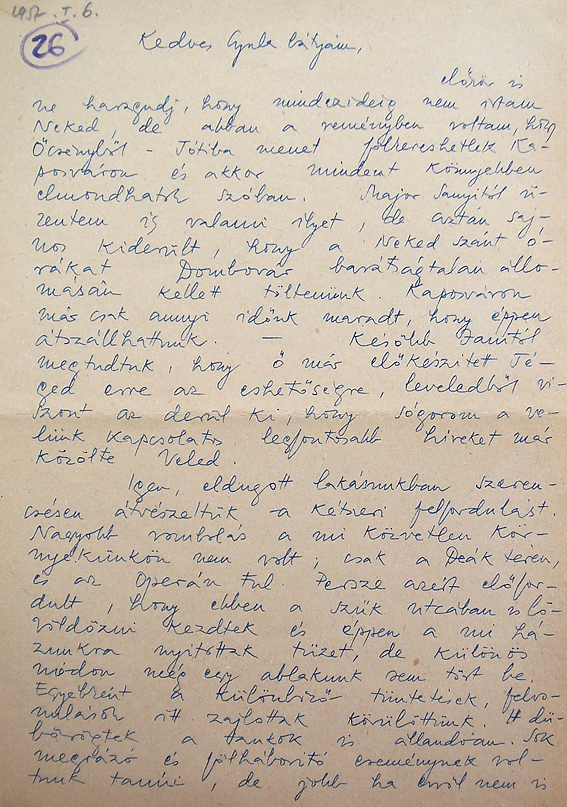 1957. I. 6.
26
Kedves Gyula bátyám,
először is
ne haragudj, hogy mindezideig nem írtam
Neked, de abban a reményben voltam, hogy
Őcsényből - Jótiba menet fölkereshetlek Ka-
posváron és akkor mindent könnyebben
elmondhatok szóban. Major Sanyitól ü-
zentem is valami ilyet, de aztán saj-
nos kiderült, hogy a Neked szánt ó-
rákat Dombovár barátságtalan állo-
másán kellett töltenünk. Kaposváron
már csak annyi időnk maradt, hogy éppen
átszállhattunk. — Később
megtudtuk, hogy ő már előkészített Té-
ged erre az eshetőségre, leveledből vi-
szont az derül ki, hogy sógorom a ve-
lünk kapcsolatos legfontosabb híreket már
közölte Veled.
Igen, eldugott lakásunkban szeren-
csésen átvészeltük a kétheti felfordulást.
Nagyobb rombolás a mi közvetlen kör-
nyékünkön nem volt; csak a Deák téren,
és az Operán túl. Persze azért előfor-
dult, hogy ebben a szűk utcában is lö-
völdözni kezdtek és éppen a mi há-
zunkra nyitottak tüzet, de különös
módon még egy ablakunk sem tört be.
Egyébként a különböző tüntetések, felvo-
nulások itt zajlottak körülöttünk. Itt dü-
börögtek a tankok is állandóan. Sok
megrázó és fölháborító eseménynek vol-
tunk tanúi, de jobb ha erről nem is